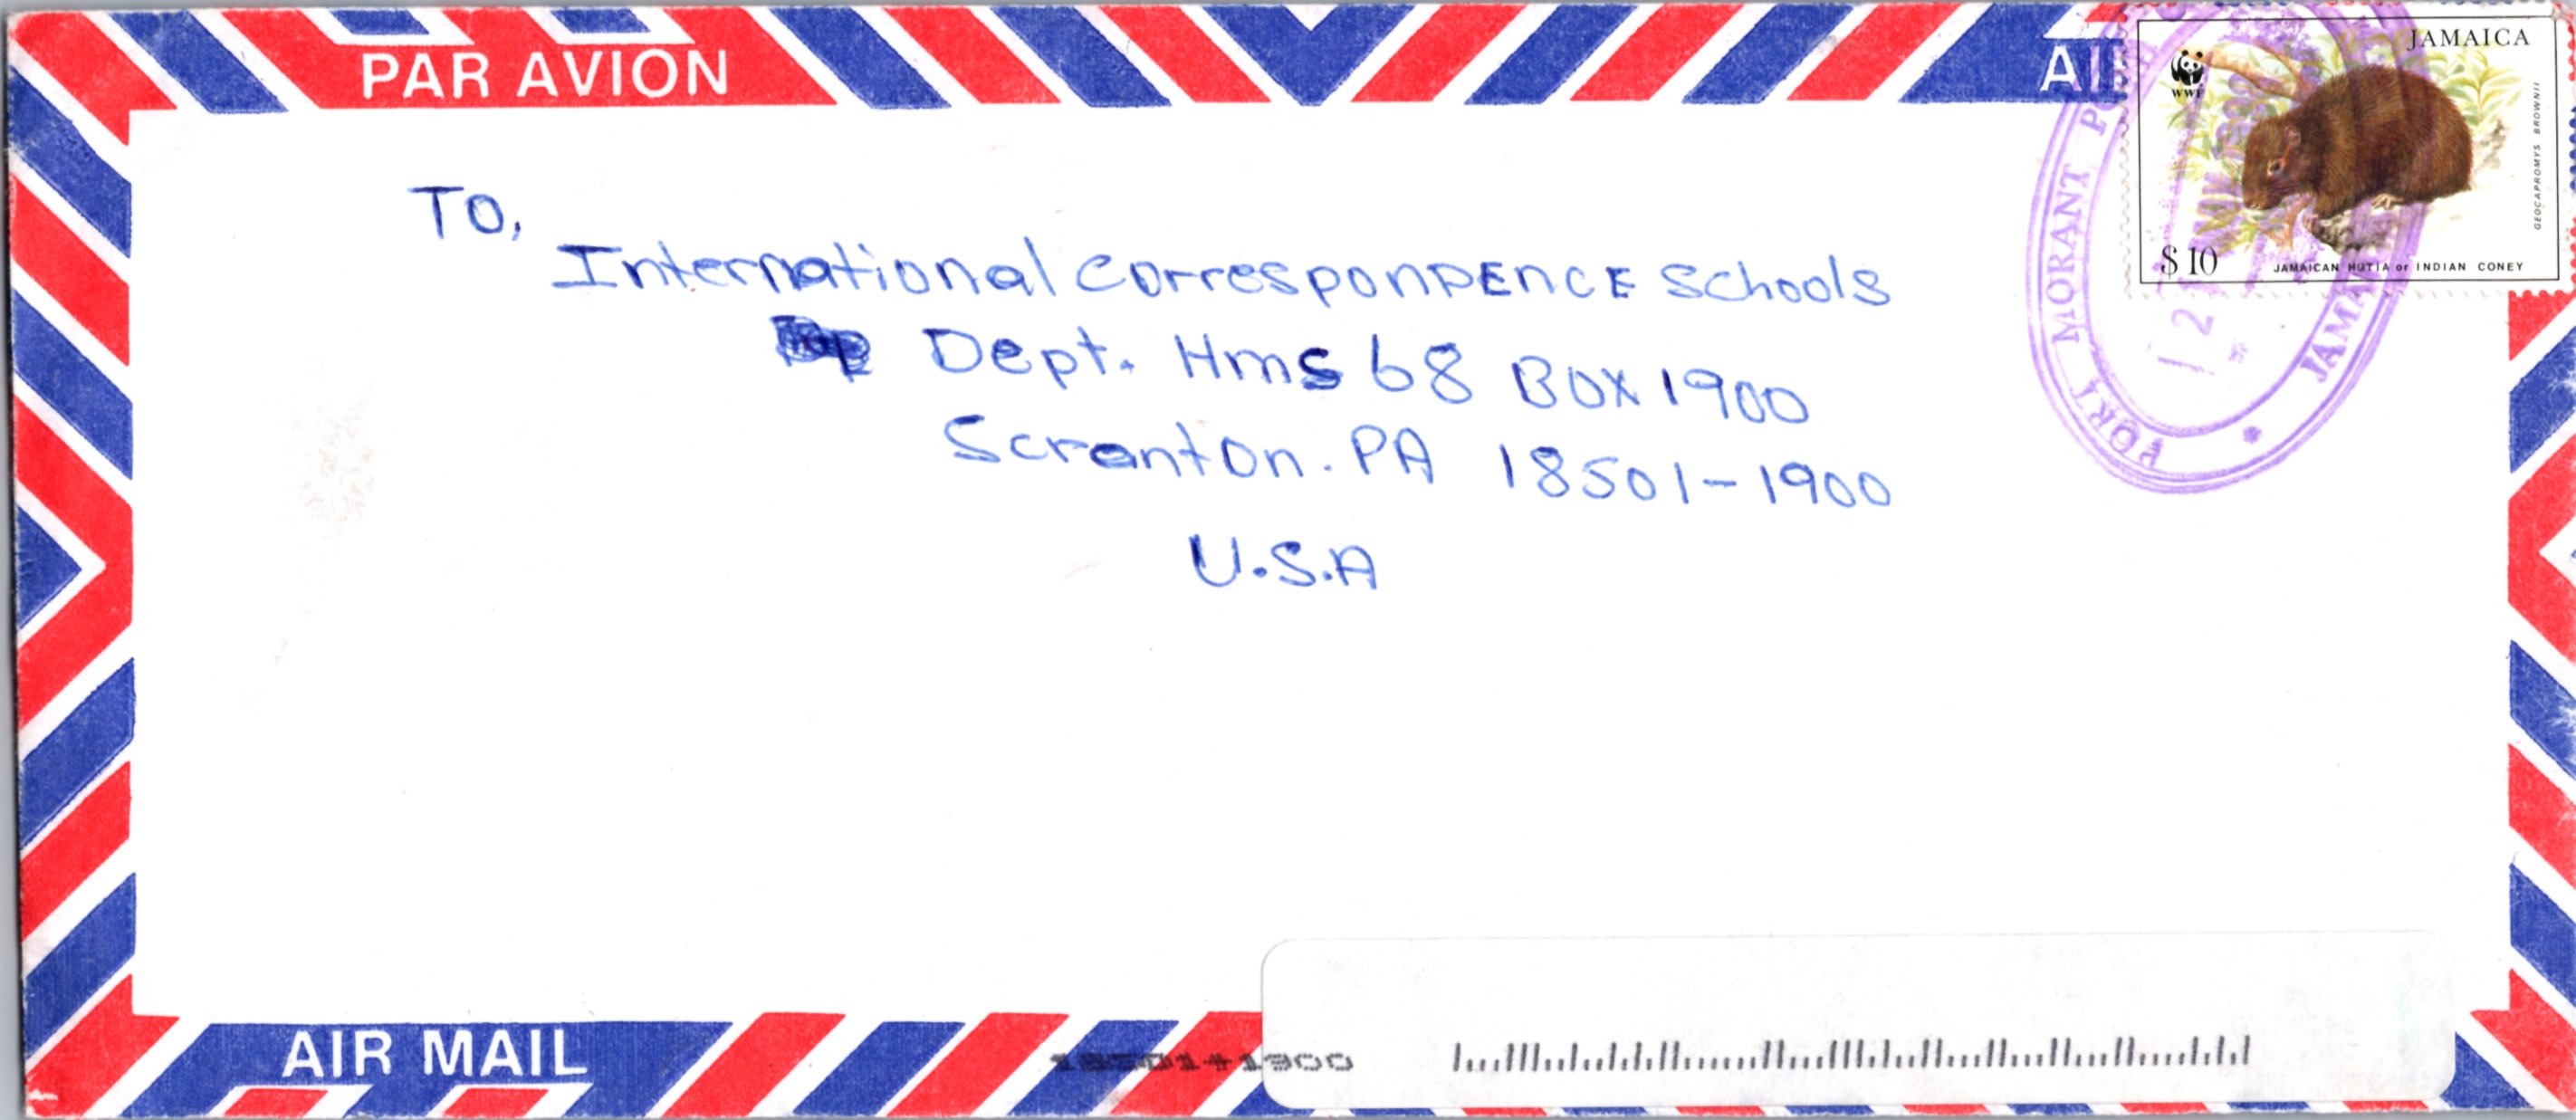 PAR AVION
JAMAICA
WWF
GEOCAPROMYS BROWNII
$10
JAMAICAN HUTIA or INDIAN CONEY
PORT MORANT
TO,
International CorresponDENCE Schools
Dept. Hms 68 BOX 1900
Scranton. PA 18501-1900
U.S.A
AIR MAIL
18501+1900